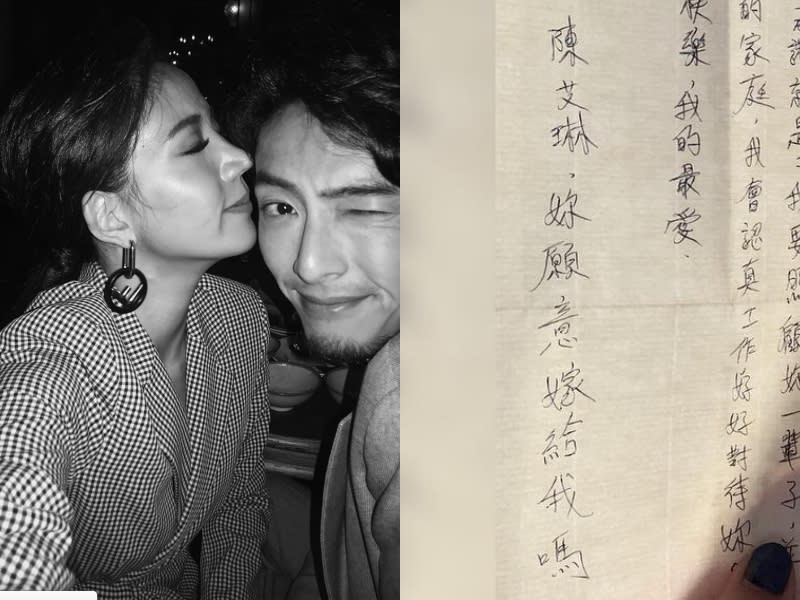 話就是:我要照顧妳一輩子,
的家庭,我會認真工作好好對待妳,
快樂,我的最愛.
陳艾琳,妳願意嫁給我嗎